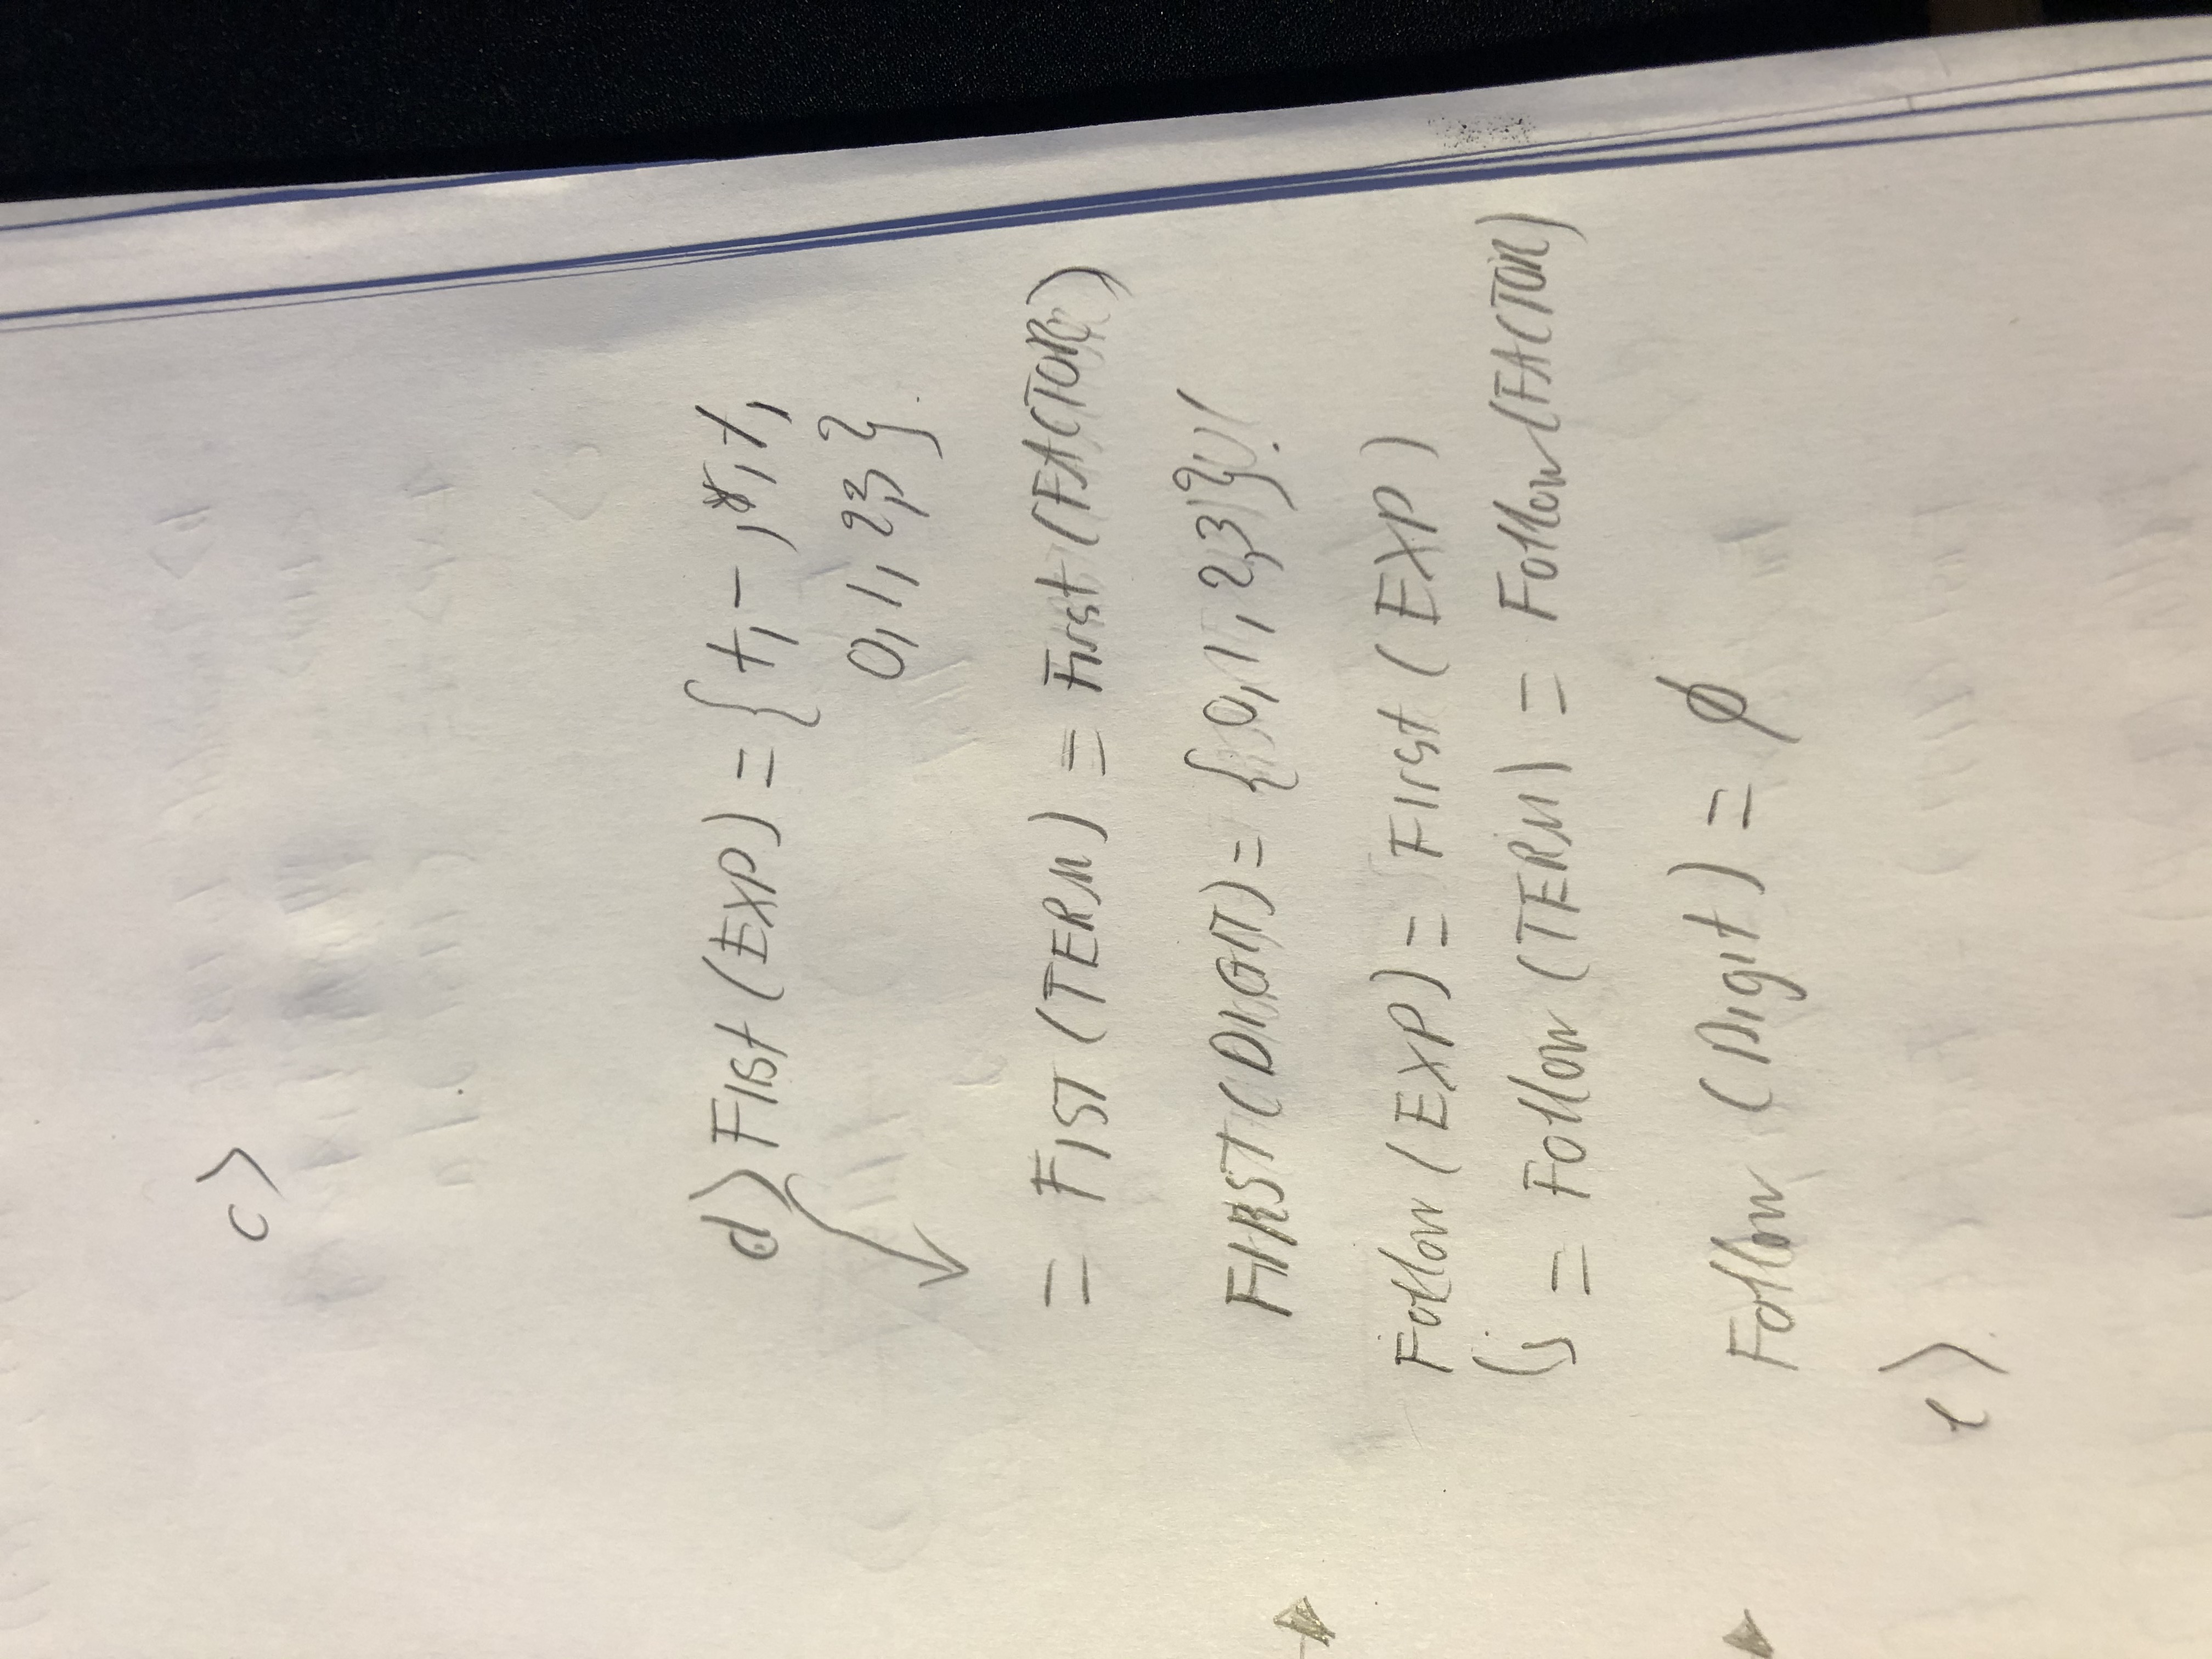 c)
d) FIst (EXP) = { +, -, *, +,
0, 1, 2,3 }.
= FIST (TERM) = First (FACTOR)
FIRST (DIGIT) = { 0, 1, 2,3 }.
Follow (EXP) = First (EXP)
= Follow (TERM) = Follow (FACTOR)
Follow (Digit) = ∅
e).